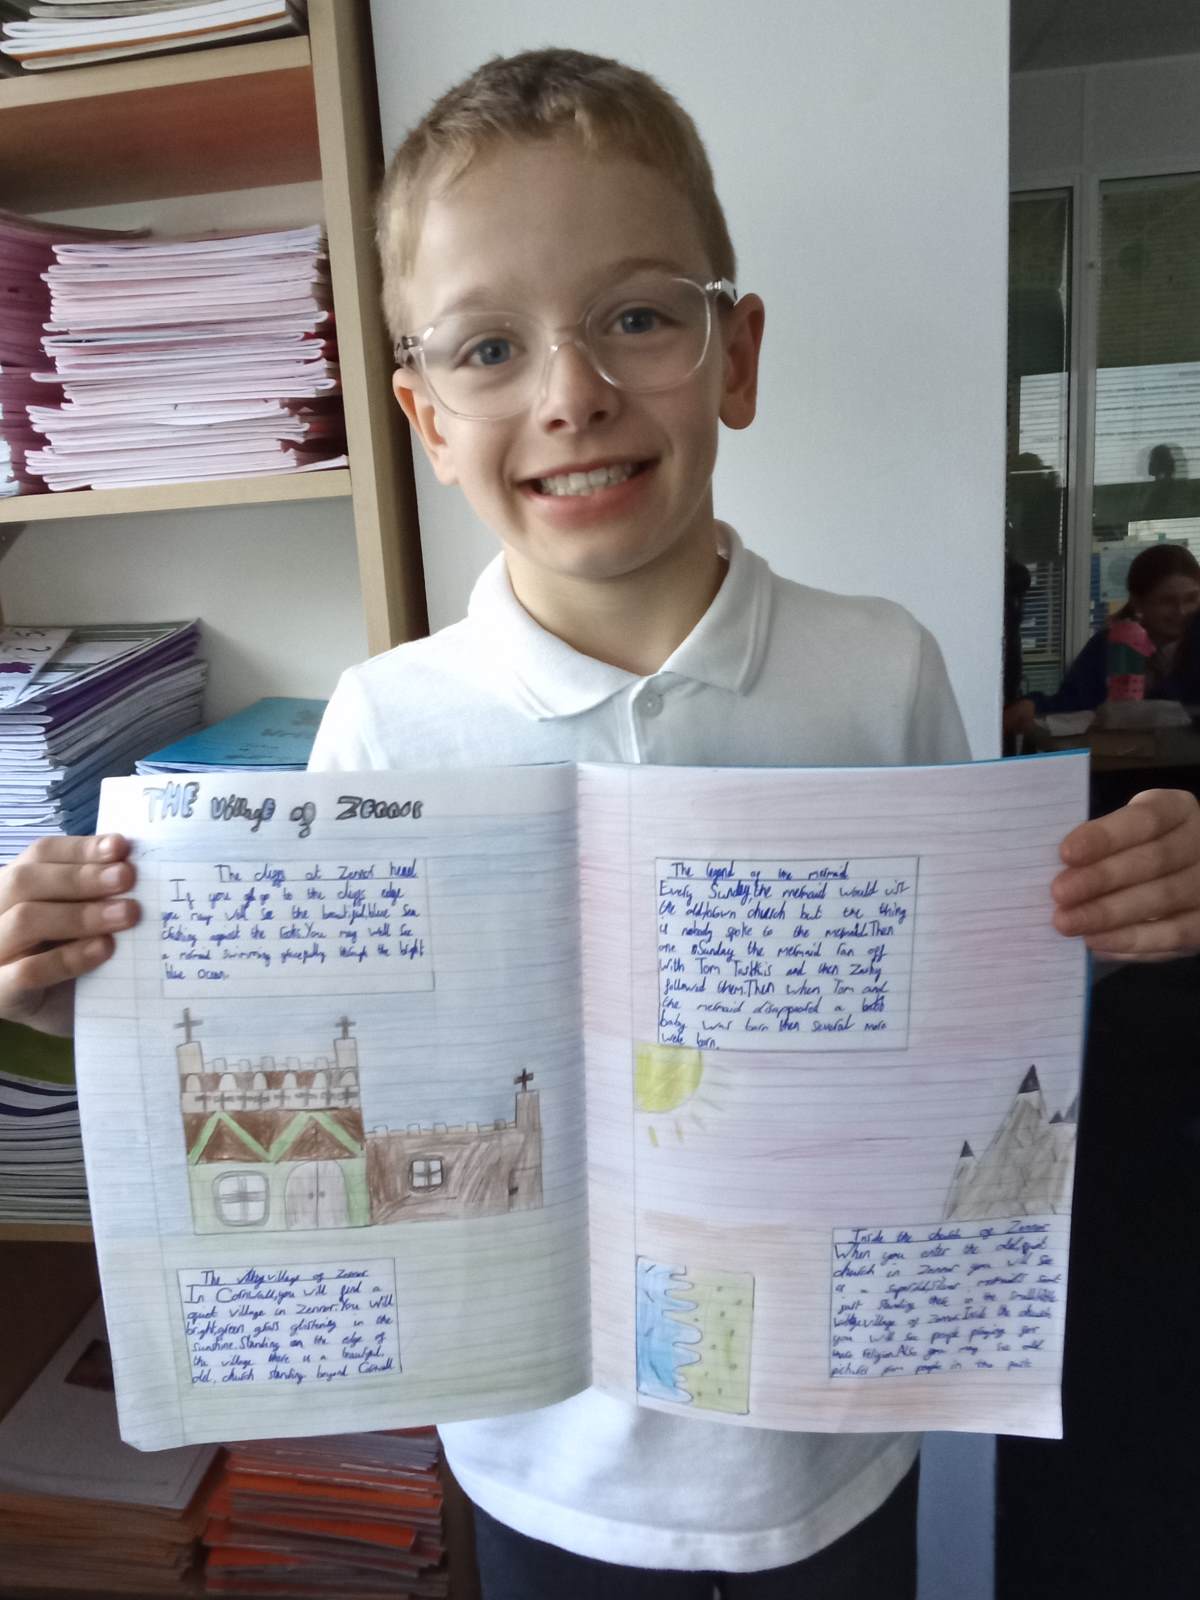 THE Village of Zennor
The cliffs at Zennor head
If you go to the cliffs edge
you may will see the beautiful,blue sea
clashing against the rocks.You may will see
a mermaid swimming gracefully through the bright
blue ocean.
The village of Zennor
In Cornwall,you will find a
quiet village in Zennor.You will
bright,green glass glistening in the
sunshine.Standing on the edge of
the village there is a beautiful,
old, church standing beyond Cornwall
The legend of the mermaid
Every Sunday,the mermaid would visit
the old,brown church but the thing
is nobody spoke to the mermaid.Then
one Sunday the mermaid ran off
with Tom and then Zachy
followed them.Then when Tom and
the mermaid disappeared a
baby was born then several more
were born.
Inside the church of Zennor
When you enter the old,quiet
church in Zennor you will see
a mermaid's seat
just standing there in the small,little
village of Zennor.Inside the church
you will see people praying for
their religion.Also you may see old
pictures from people in the past